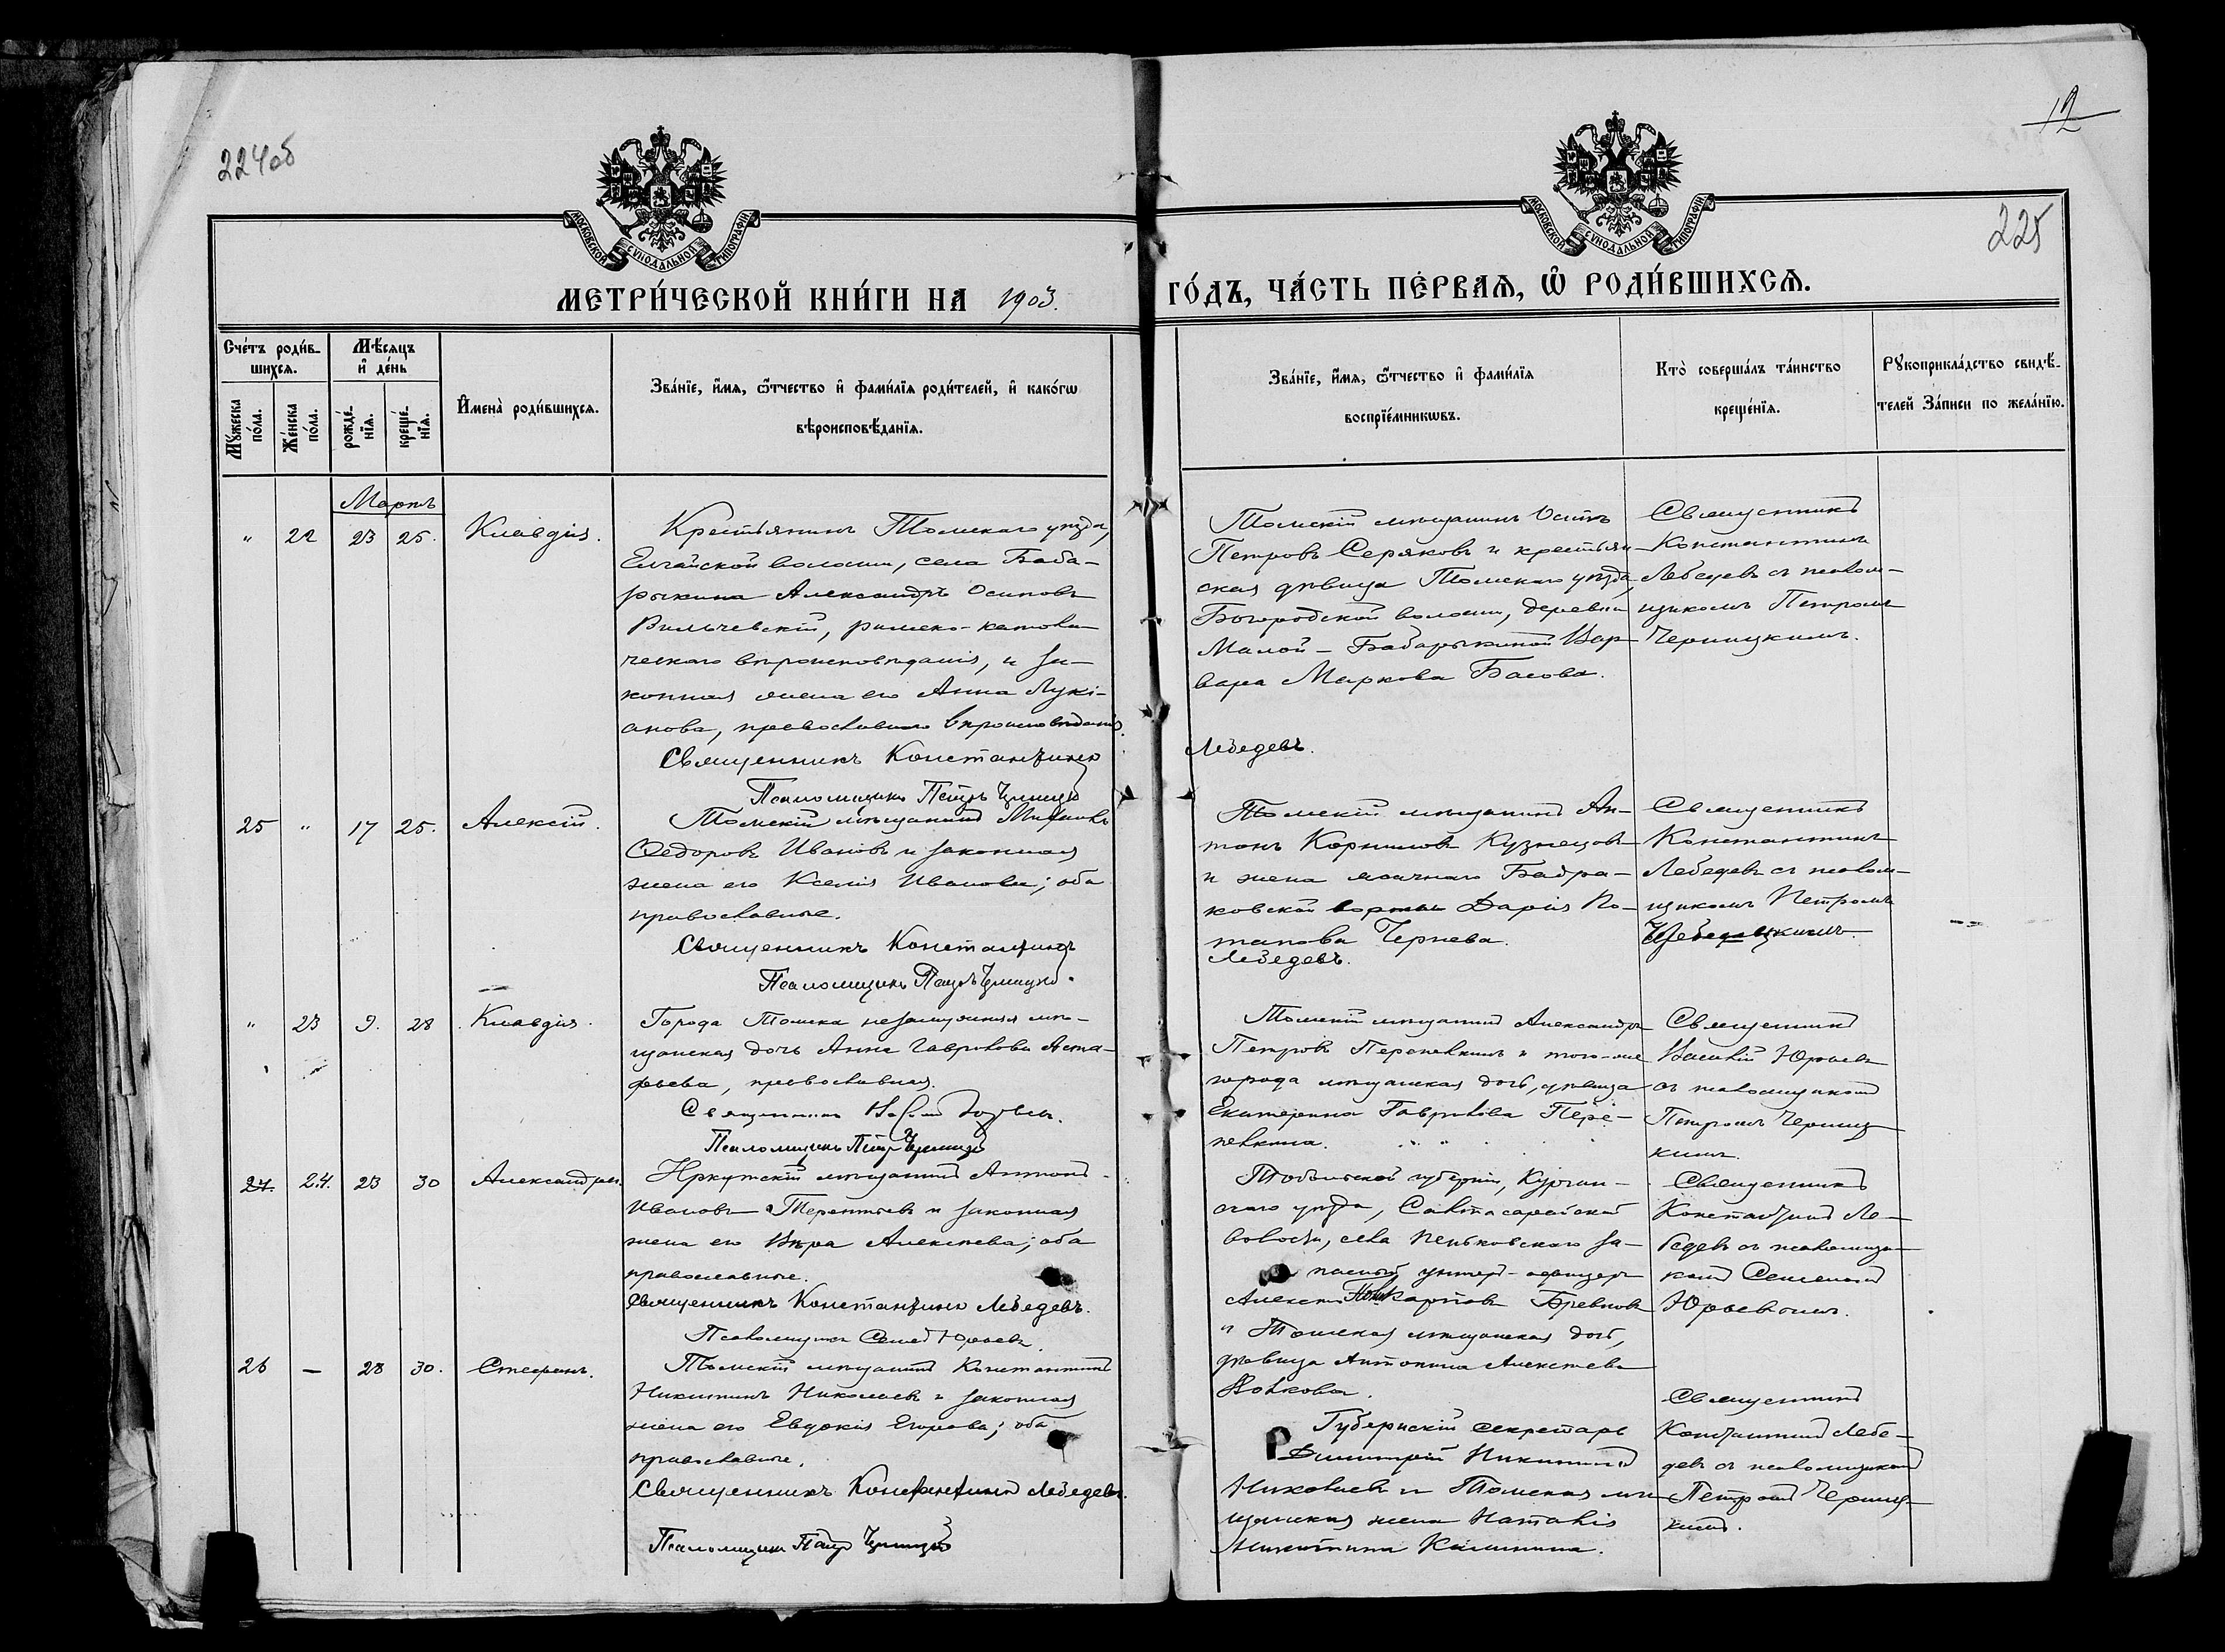 224об
12
225
МОСКОВСКОЙ СѴНОДАЛЬНОЙ ТИПОГРАФІИ
МОСКОВСКОЙ СѴНОДАЛЬНОЙ ТИПОГРАФІИ
МЕТРИ́ЧЕСКОЙ КНИ́ГИ НА 1903.
ГО́ДЪ, ЧА́СТЬ ПЕ́РВАѦ, Ѡ҆ РОДИ́ВШИХСѦ.
Сче́тъ роди́в-
шихсѧ.
Мꙋ́жеска по́ла.
Же́нска по́ла.
Мѣ́сяцъ и҆ де́нь
рожде́-нїѧ.
креще́-нїѧ.
И҆мена̀ роди́вшихсѧ.
Зва́нїе, и҆́мѧ, ѻ҆́тчество и҆ фами́лїѧ роди́телей, и҆ како́гѡ
вѣроисповѣ́данїѧ.
Зва́нїе, и҆́мѧ, ѻ҆́тчество и҆ фами́лїѧ
воспрїе́мникѡвъ.
Кто̀ соверша́лъ та́инство
креще́нїѧ.
Рꙋкоприкла́дство свидѣ́-
телей За́писи по жела́нїю.
Мартъ
" 22 23 25. Клавдія.
Крестьянинъ Томскаго уѣзда,
Елгайской волости, села Баба-
рыкина Александръ Осиповъ
Вильчевскій, римско-католи-
ческаго вѣроисповѣданія, и за-
конная жена его Анна Лукі-
анова, православнаго вѣроисповѣданія.
Священникъ Константинъ
Лебедевъ.
Псаломщикъ Петръ
Томскій мѣщанинъ Осипъ
Петровъ Серяковъ и крестьян-
ская дѣвица Томскаго уѣзда,
Богородской волости, деревни
Малой-Бабарыкиной Вар-
вара Маркова Басова.
Священникъ
Константинъ
Лебедевъ съ псалом-
щикомъ Петромъ
Черницкимъ.
25 " 17 25. Алексій.
Томскій мѣщанинъ
Ѳедоровъ Ивановъ и законная
жена его Ксенія Иванова; оба
православные.
Священникъ Константинъ
Лебедевъ.
Псаломщикъ Петръ
Томскій мѣщанинъ Ан-
тонъ Корниловъ Кузнецовъ
и жена
ковской Дарія По-
тапова Чернева.
Священникъ
Константинъ
Лебедевъ съ псалом-
щикомъ Петромъ
" 23 9. 28. Клавдія.
Города Томска незамужняя мѣ-
щанская дочь Анна Гаврилова Аста-
фьева, православная.
Священникъ
Псаломщикъ Петръ
Томскій мѣщанинъ Александръ
Петровъ Перепелкинъ и того-же
города мѣщанская дочь, дѣвица
Екатерина Гаврилова Пере-
пелкина.
Священникъ
Василій Юрьевъ
съ псаломщикомъ
Петромъ Черниц-
кимъ.
24. 24. 23 30 Александра.
Иркутскій мѣщанинъ Антонъ
Ивановъ Терентьевъ и законная
жена его Вѣра Алексѣева; оба
православные.
Священникъ Константинъ Лебедевъ.
Псаломщикъ Семенъ Юрьевъ.
Тобольской губерніи, Курган-
скаго уѣзда, Салтасарайской
волости, села Пеньковскаго за-
пасный унтеръ-офицеръ
Алексѣй Карповъ Бревновъ
и Томская мѣщанская дочь,
дѣвица Антонина Алексѣева
Священникъ
Константинъ Ле-
бедевъ съ псаломщи-
комъ Семеномъ
Юрьевымъ.
26 — 28 30. Стефанъ.
Томскій мѣщанинъ Константинъ
Никитинъ Николаевъ и законная
жена его Евдокія Егорова; оба
православные.
Священникъ Константинъ Лебедевъ.
Псаломщикъ Петръ
Губернскій секретарь
Димитрій Никитинъ
Николаевъ и Томская мѣ-
щанская жена Наталія
Никитина Калинина.
Священникъ
Константинъ Лебе-
девъ съ псаломщикомъ
Петромъ Черниц-
кимъ.